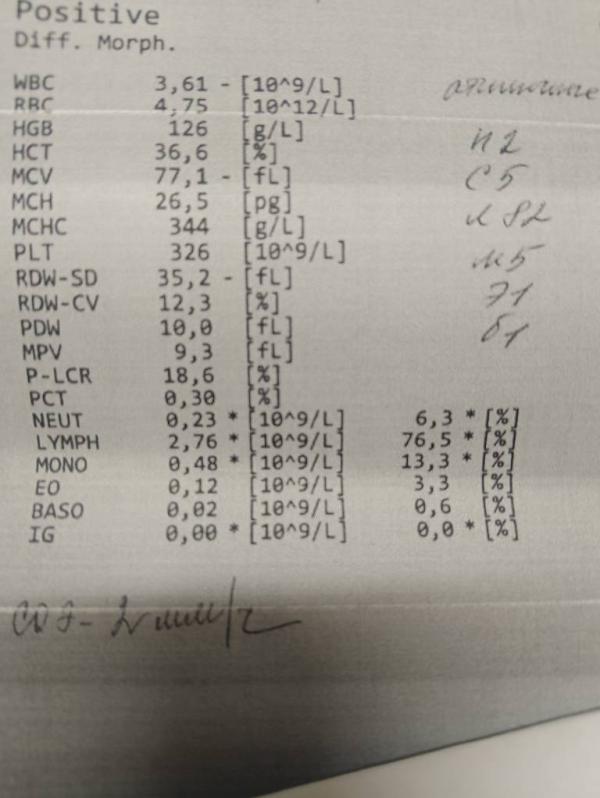 Positive
Diff. Morph.
WBC 3,61 - [10^9/L]
RBC 4,75 [10^12/L]
HGB 126 [g/L] п2
HCT 36,6 [%]
MCV 77,1 - [fL] с5
MCH 26,5 [pg]
MCHC 344 [g/L] л 82
PLT 326 [10^9/L] м5
RDW-SD 35,2 - [fL]
RDW-CV 12,3 [%] э1
PDW 10,0 [fL] б1
MPV 9,3 [fL]
P-LCR 18,6 [%]
PCT 0,30 [%]
NEUT 0,23 * [10^9/L] 6,3 * [%]
LYMPH 2,76 * [10^9/L] 76,5 * [%]
MONO 0,48 * [10^9/L] 13,3 * [%]
EO 0,12 [10^9/L] 3,3 [%]
BASO 0,02 [10^9/L] 0,6 [%]
IG 0,00 * [10^9/L] 0,0 * [%]
СОЭ - 2 мм/ч